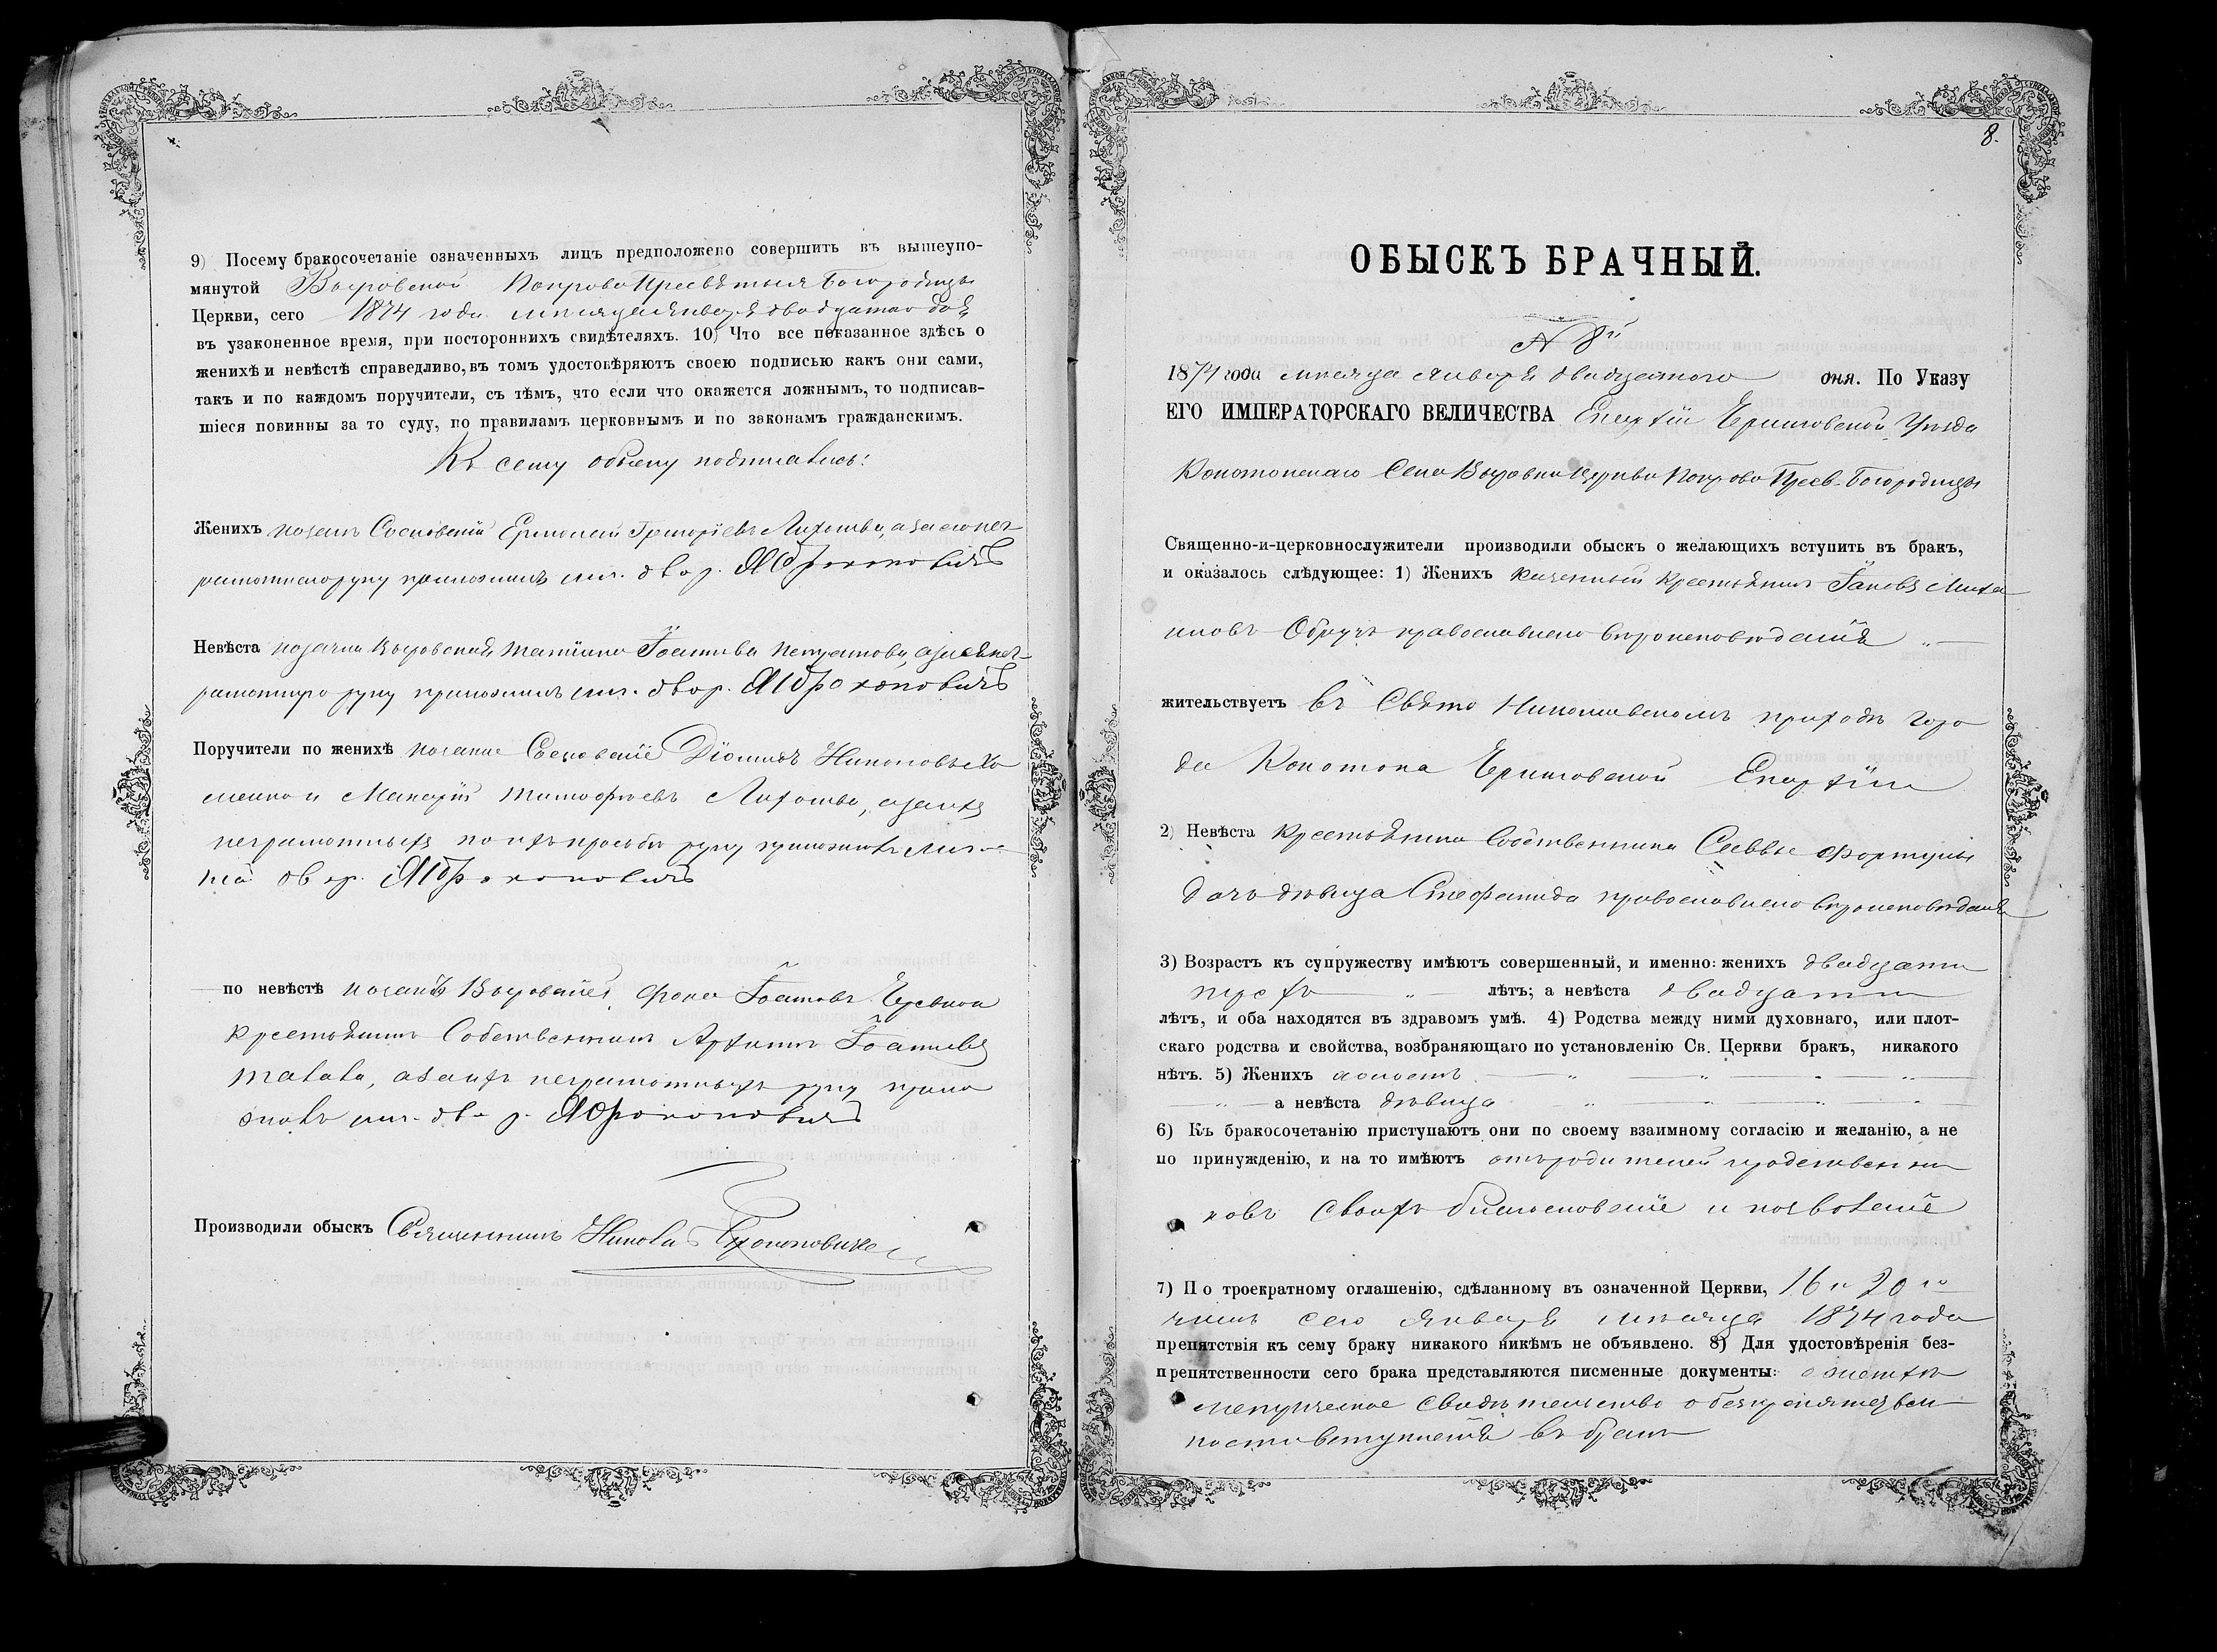 9) Посему бракосочетаніе означенныхъ лицъ предположено совершить въ вышеупо-
мянутой Выровской Покрово Пресвятыя Богородицы
Церкви, сего 1874 года мѣсяца января двадцатаго дня
въ узаконенное время, при постороннихъ свидѣтеляхъ. 10) Что все показанное здѣсь о
женихѣ и невѣстѣ справедливо, въ томъ удостовѣряютъ своею подписью какъ они сами,
такъ и по каждомъ поручители, съ тѣмъ, что если что окажется ложнымъ, то подписав-
шіеся повинны за то суду, по правиламъ церковнымъ и по законамъ гражданскимъ.
Къ сему обыску подписались:
Женихъ козакъ Сосновскій Ермолай Григоріевъ Лихошва, а за его нег-
рамотнаго руку приложилъ лич. двор. Прокоповичъ
Невѣста козачка Выровская Татіана Іоаннова а за ея нег-
рамотную руку приложилъ лич. двор. Прокоповичъ
Поручители по женихѣ козаки Сосновскіе Діомидъ Никоновъ Хо
менко и Макарій Тимофѣевъ Лихошва, а за ихъ
неграмотныхъ по ихъ просьбѣ руку приложилъ лич-
ный двор. Прокоповичъ
по невѣстѣ козакъ Выровскій Фока Іоанновъ
крестьянинъ Собственникъ Архипъ Іоанновъ
Малаха, а за ихъ неграмотныхъ руку прило
жилъ лич. двор. Прокоповичъ
Производили обыскъ Священникъ Никола Прокоповичъ
8.
ОБЫСКЪ БРАЧНЫЙ.
№ 8й
1874 года мѣсяца Января двадцатого дня. По Указу
ЕГО ИМПЕРАТОРСКАГО ВЕЛИЧЕСТВА Епархіи Черниговской Уѣзда
Конотопскаго Села Выровки Церкви Покрова Пресв. Богородицы
Священно-и-церковнослужители производили обыскъ о желающихъ вступить въ бракъ,
и оказалось слѣдующее: 1) Женихъ казенный крестьянинъ Іаковъ Миха
иловъ Обручъ православнаго вѣроисповѣданія
жительствуетъ въ Свято Николаевскомъ приходѣ горо
да Конотопа Черниговской Епархіи
2) Невѣста крестьянина Собственника Саввы Фортуны
дочь дѣвица Стефанида православнаго вѣроисповѣданія
3) Возрастъ къ супружеству имѣютъ совершенный, и именно: женихъ двадцати
трехъ лѣтъ; а невѣста двадцати
лѣтъ, и оба находятся въ здравомъ умѣ. 4) Родства между ними духовнаго, или плот-
скаго родства и свойства, возбраняющаго по установленію Св. Церкви бракъ, никакого
нѣтъ. 5) Женихъ холостъ
а невѣста дѣвица
6) Къ бракосочетанію приступаютъ они по своему взаимному согласію и желанію, а не
по принужденію, и на то имѣютъ отъ родителей и родственни
ковъ своихъ благословеніе и позволеніе
7) По троекратному оглашенію, сдѣланному въ означенной Церкви, 16 и 20го
чиселъ сего января мѣсяца 1874 года
препятствія къ сему браку никакого никѣмъ не объявлено. 8) Для удостовѣренія без-
препятственности сего брака представляются писменные документы: о женихѣ
метрическое свидѣтельство о безпрепятствен
ности вступленія въ бракъ